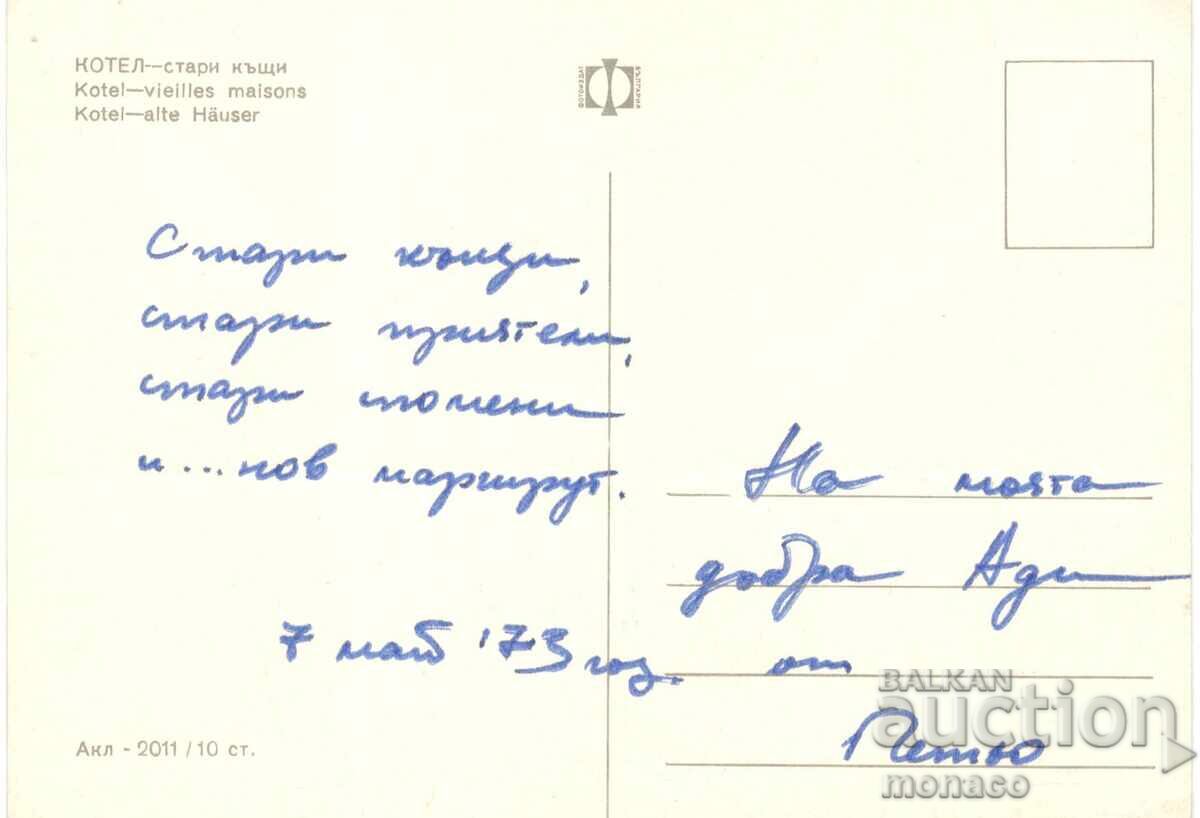 КОТЕЛ—стари къщи
Kotel—vieilles maisons
Kotel—alte Häuser
ФОТОИЗДАТ
БЪЛГАРИЯ
Стари къщи,
стари приятели,
стари спомени
и...нов маршрут.
7 май '73 год.
На моята
добра Ади
от
Петю
Акл - 2011 / 10 ст.
BALKAN
auction
monaco